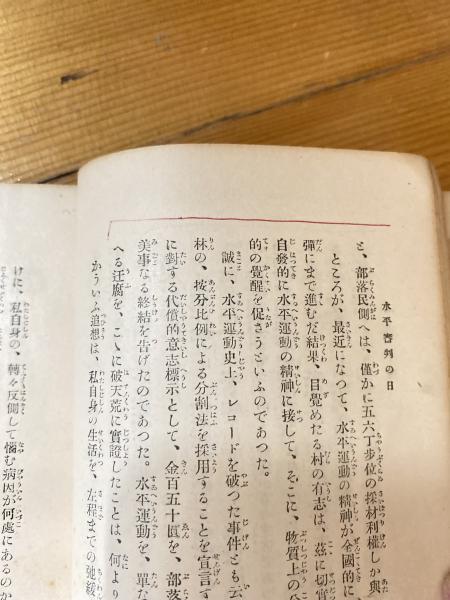 水平審判の日
と、部落民側へは、僅かに五六丁步位の採材利權しか與
ところが、最近になつて、水平運動の精神が全國的に
彈にまで進むだ結果、目覺めたる村の有志は、茲に切實
自發的に水平運動の精神に接して、そこに、物質上の
的の覺醒を促さうといふのであつた。
誠に、水平運動史上、レコードを破つた事件とも云
林の、按分比例による分割法を採用することを宣言す
に對する代償的意志標示として、金百五十圓を、部落
美事なる終結を告げたのであつた。水平運動を、單な
へる迂腐を、こゝに破天荒に實證したことは、何より
かういふ追想は、私自身の生活を、左程までの弛緩
けに、私自身の、轉々反側して惱む病因が何處にあるのか